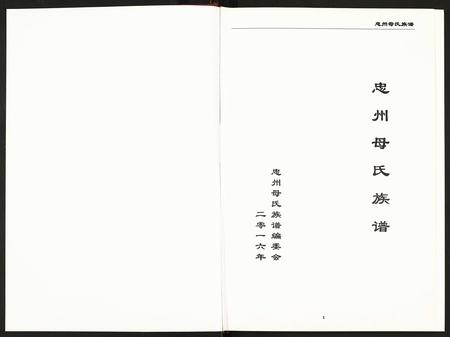 忠州母氏族谱
忠州母氏族谱
忠州母氏族谱编委会
二零一六年
1